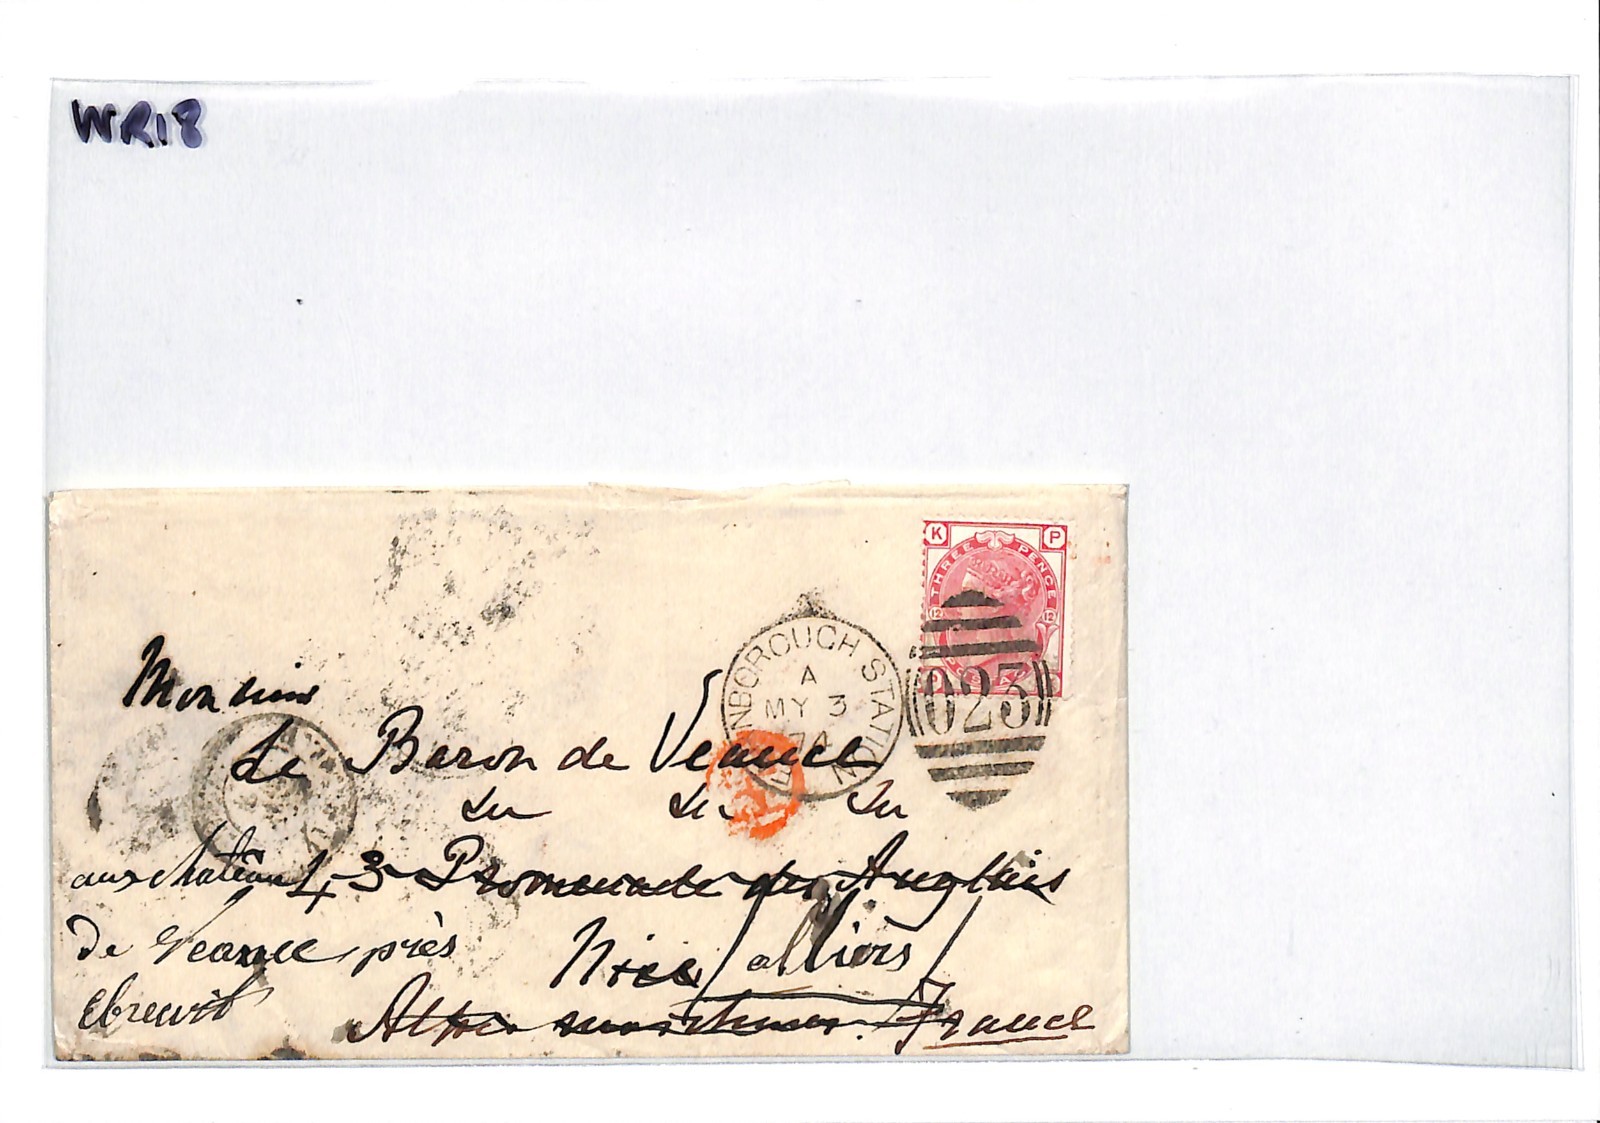 WR18
K P
THREE PENCE
12 12
POSTAGE
NBOROUGH STATION
A
MY 3
74
023
Monsieur
Le Baron de Veauce
au château
3 Promenade des Anglais
de Veauce près
Nice / alliers /
Ebreuil
Alpes maritimes. France